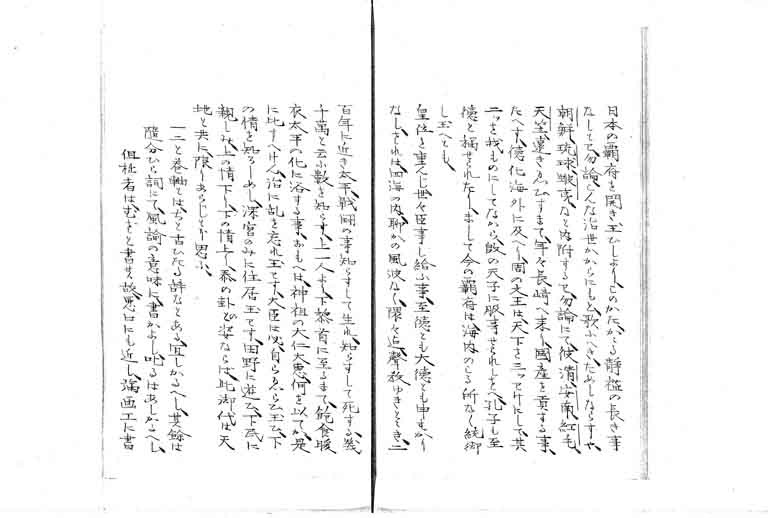 日本の覇府を開き玉ひしよりこのかたかゝる静謐の長き事
なしとて勿論こんな治世からからにもと歌ふへきためしならすや
朝鮮琉球蝦夷なと内附するは勿論にて彼清安南紅毛
天竺遠きゑひすまて年々長崎へ来り國産を貢する事
たへす徳化海外に及へり周の文王は天下を三ッわけにして其
二ッを我ものにしてなから殷の天子に服事せられしをへ孔子も至
徳と稱せられたりまして今の覇府は海内のこる所なく統御
し玉へとも
皇位を重んし世々臣事し給ふ事至徳とも大徳とも申すへ
なしされは四海の内聊かの風波なく隈々迄聲教ゆきとゝき二
百年に近き太平戦闘の事知らすして生れ知らすして死する幾
千萬と云ふ数を知らす上一人より下黎首に至るまて飽食暖
衣太平の化に浴する事おもへは神祖の大仁大恵何を以てか是
に比すへけん治に乱を忘れ玉はす大臣は必自らゑらひ玉ひ下
の情を知ろしめし深宮のみに住居玉はす田野に遊ひ下民に
親しみ上の情下り下の情上り泰の卦の姿ならは此御代は天
地と共に限りあらしとそ思ふ
一二と巻軸とはちと古ひたる評なとある宜しかるへし其餘は
隨分ひら詞にて風諭の意味に書かよし叱るはあしかるへし
但祉者はむさと書は故悪口にも近し稿画工に書